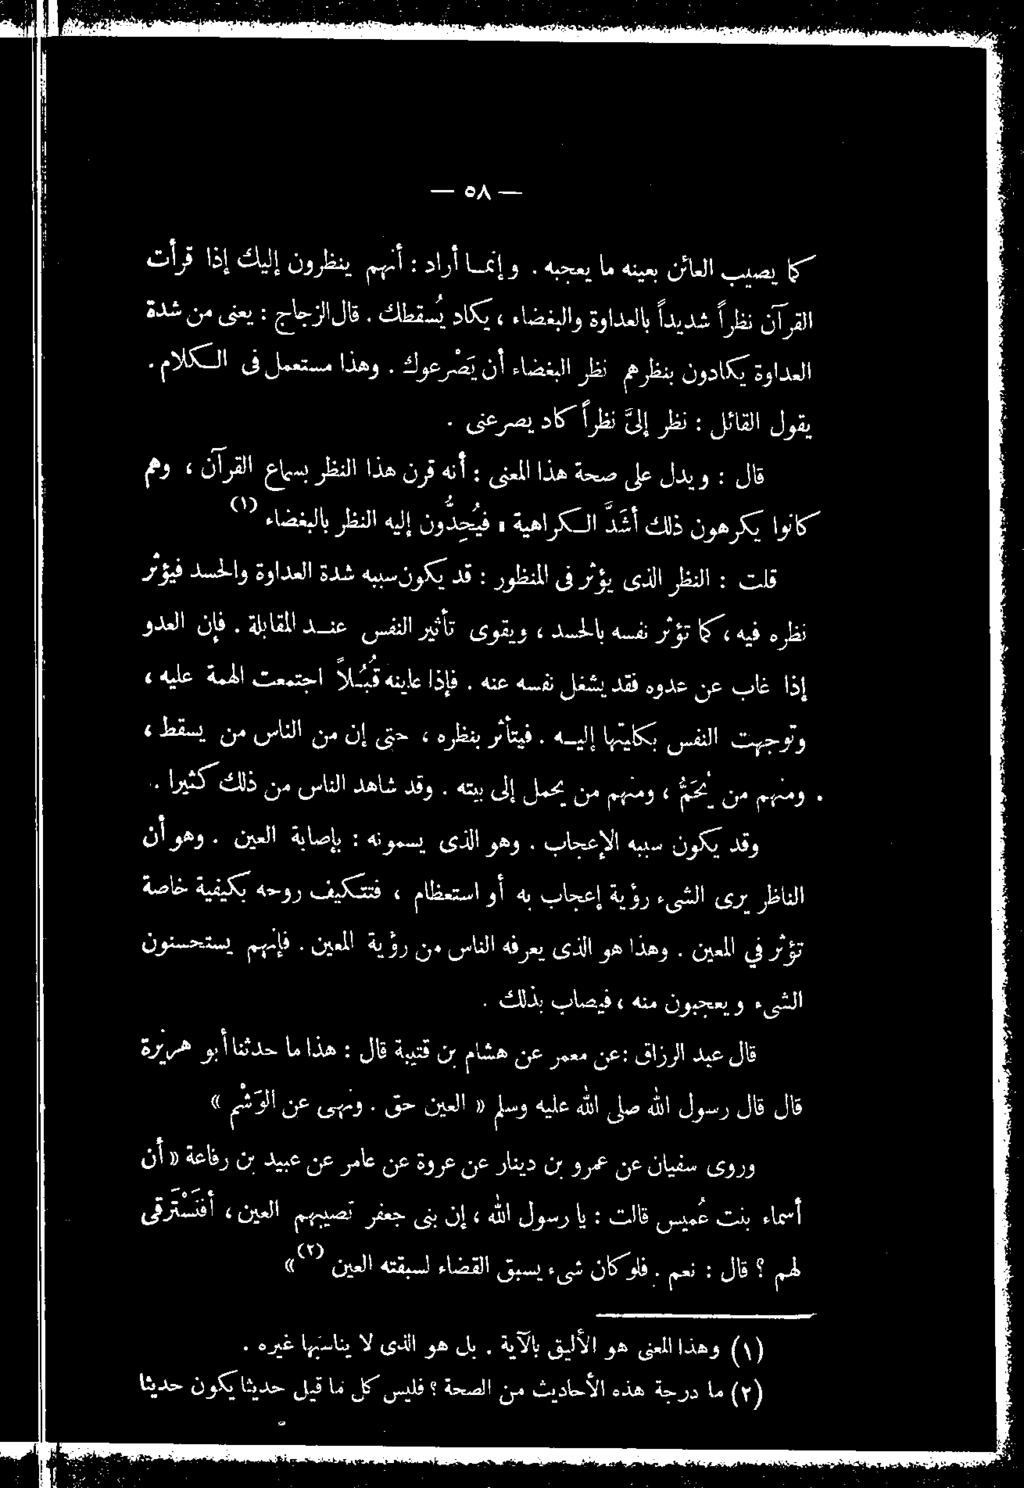 — ٥٨ —
كما يصيب العائن بعينه ما يعجبه . وإنمـا أراد : أنهم ينظرون إليك إذا قرأت
القرآن نظراً شديداً بالعداوة والبغضاء ، يكاد يُسقطك . قال الزجاج : يعنى من شدة
العداوة يكادون بنظرهم نظر البغضاء أن يَصْرعوك . وهذا مستعمل فى الـكلام .
يقول القائل : نظر إلىَّ نظراً كاد يصرعنى .
قال : ويدل على صحة هذا المعنى : أنه قرن هذا النظر بسماع القرآن ، وهم
كانوا يكرهون ذلك أشَدَّ الـكراهية ، فيُحِدُّون إليه النظر بالبغضاء (١)
قلت : النظر الذى يؤثر فى المنظور : قد يكون سببه شدة العداوة والحسد فيؤثر
نظره فيه ، كما تؤثر نفسه بالحسد ، ويقوى تأثير النفس عنـد المقابلة . فإن العدو
إذا غاب عن عدوه فقد يشغل نفسه عنه . فإذا عاينه قُبُـلاً اجتمعت الهمة عليه ،
وتوجهت النفس بكليتها إليـه . فيتأثر بنظره ، حتى إن من الناس من يسقط ،
ومنهم من يُحَمُّ ، ومنهم من يحمل إلى بيته . وقد شاهد الناس من ذلك كثيرا .
وقد يكون سببه الإعجاب . وهو الذى يسمونه : بإصابة العين . وهو أن
الناظر يرى الشىء رؤية إعجاب به أو استعظام ، فتتكيف روحه بكيفية خاصة
تؤثر في المعين . وهذا هو الذى يعرفه الناس من رؤية المعين . فإنهم يستحسنون
الشىء ويعجبون منه ، فيصاب بذلك .
قال عبد الرزاق عن : معمر عن هشام بن قتيبة قال : هذا ما حدثنا أبو هريرة
قال قال رسول الله صلى الله عليه وسلم « العين حق . ونهى عن الوَشْم »
وروى سفيان عن عمرو بن دينار عن عروة عن عامر عن عبيد بن رفاعة « أن
أسماء بنت عُميس قالت : يا رسول الله ، إن بنى جعفر تصيبهم العين ، أفنَسْتَرقى
لهم ؟ قال : نعم . فلو كان شىء يسبق القضاء لسبقته العين (٢) »
(١) وهذا المعنى هو الأليق بالآية . بل هو الذى لا يناسبها غيره .
(٢) ما درجة هذه الأحاديث من الصحة ؟ فليس كل ما قيل حديثا يكون حديثا